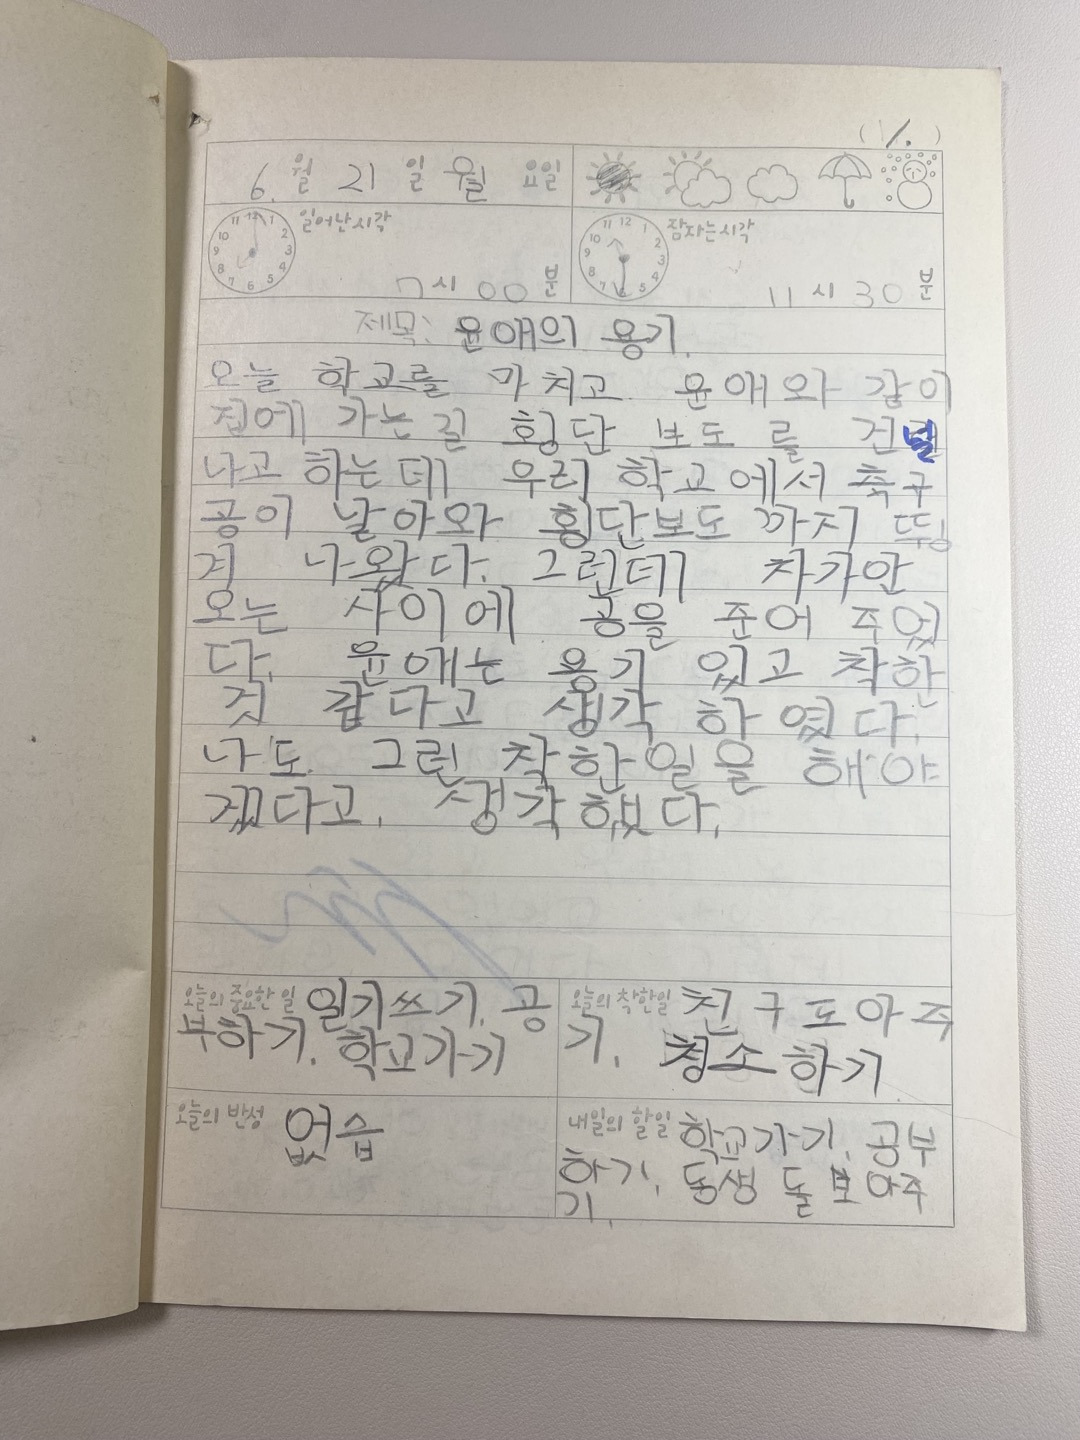 6. 월 21 일 월 요일
일어난시각
7시 00분
잠자는시각
11시 30분
제목: 윤애의 용기.
오늘 학교를 마치고 윤애와 같이
집에 가는 길 횡단 보도를 건널
나고 하는데 우리 학교에서 축구
공이 날아와 횡단보도 까지 뚱
겨 나왔다. 그런데 차가안
오는 사이에 공을 준어 주었
다. 윤애는 용기 있고 착한
것 같다고 생각 하였다.
나도 그런 착한일을 해야
겠다고. 생각했다.
오늘의 중요한 일 일기쓰기. 공
부하기. 학교가기
오늘의 착한일 친구도아주
기. 청소하기
오늘의 반성 없습
내일의 할일 학교가기. 공부
하기. 동생 돌보아주
기.